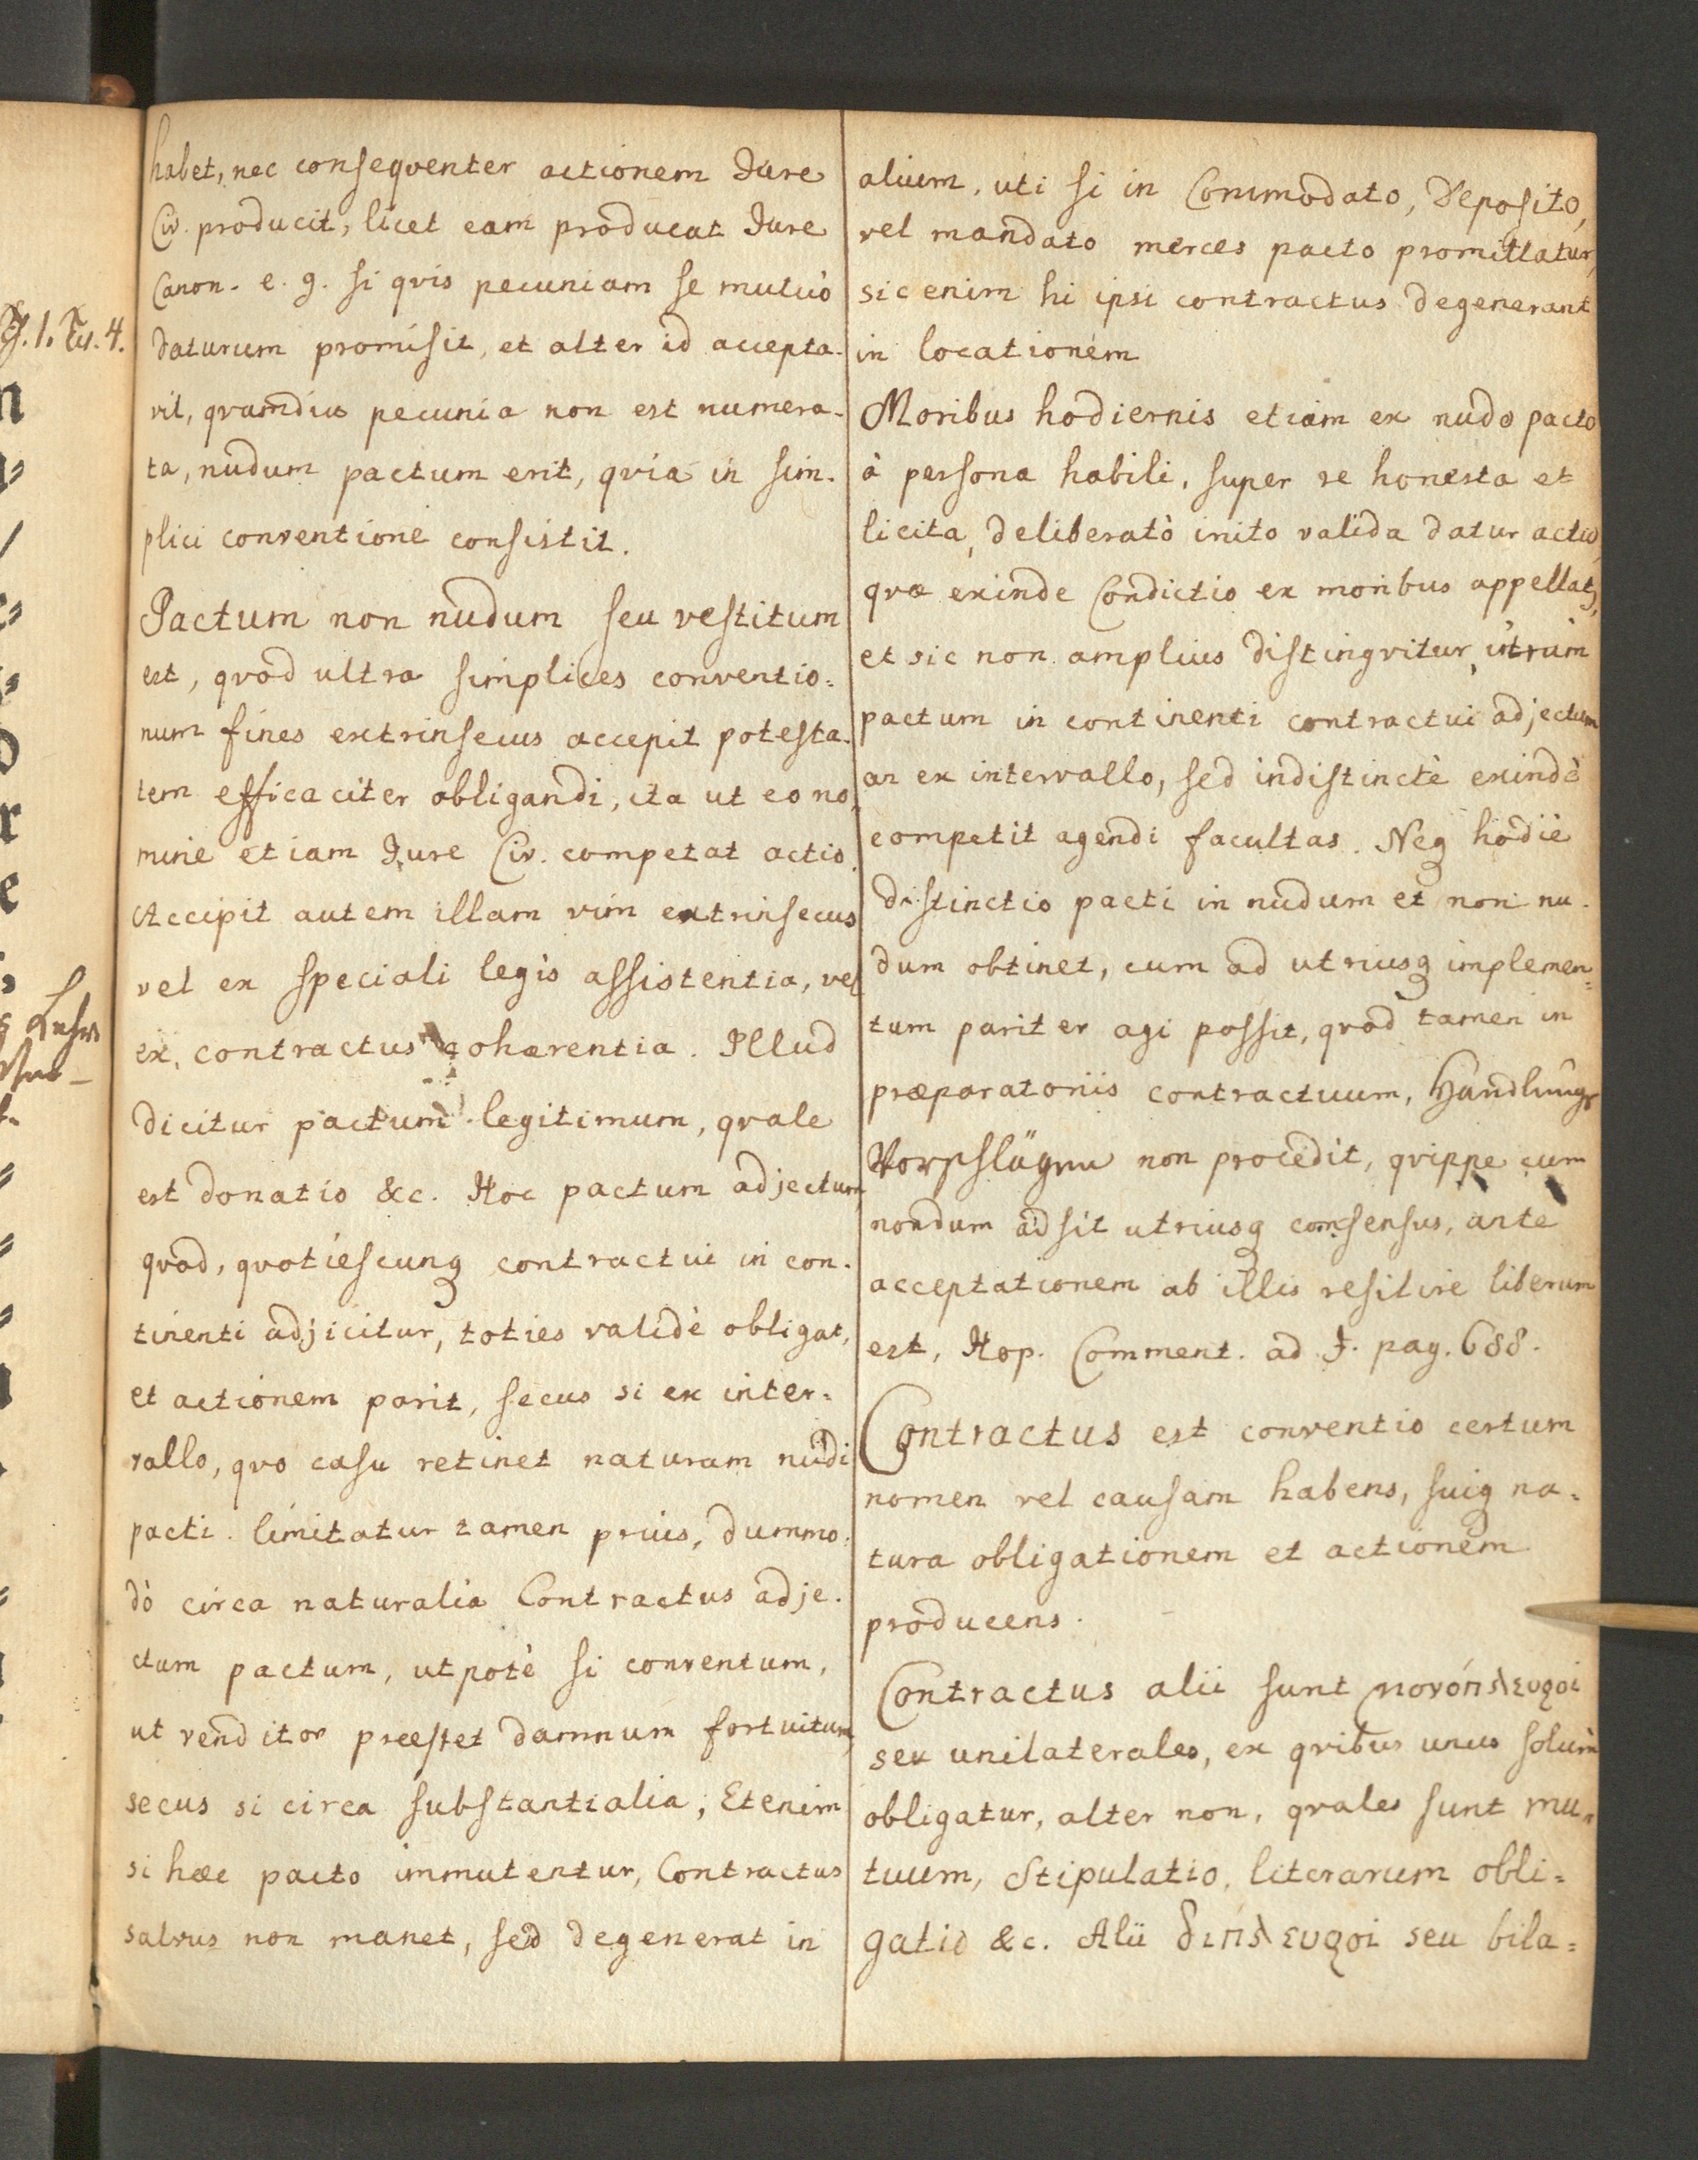 habet, nec conseqventer actionem Jure
Civ. producit, licet eam producat Jure
Canon. e. g. si qvis pecuniam se mutuò
daturum promisit, et alter id accepta-
vit, qvamdiu pecunia non est numera-
ta, nudum pactum erit, qvia in sim-
plici conventione consistit.
Pactum non nudum seu vestitum
est, qvod ultra simplices conventio=
num fines extrinsecus accepit potesta-
tem efficaciter obligandi, ita ut eo no,
mine etiam Jure Civ. competat actio.
Accipit autem illam vim extrinsecus
vel ex speciali legis assistentia, vel
ex contractus cohærentia. Illud
dicitur pactum legitimum, qvale
est donatio &c. Hoc pactum adjectum,
qvod, qvotiescunq contractui in con-
tinenti adjicitur, toties validè obligat,
et actionem parit, secus si ex inter=
vallo, qvo casu retinet naturam nudi
pacti. limitatur tamen prius, dummo-
dò circa naturalia Contractus adje-
ctum pactum, utpotè si conventum,
ut venditor præstet damnum fortuitum,
secus si circa substantialia, Etenim
si hæc pacto immutentur, Contractus
salvus non manet, sed degenerat in
alium, uti si in Commodato, Deposito,
vel mandato merces pacto promittatur,
sic enim hi ipsi contractus degenerant
in locationem
Moribus hodiernis etiam ex nudo pacto
à persona habili, super re honesta et
licita, deliberatò inito valida datur actio,
qvæ exinde Condictio ex moribus appellat,
et sic non amplius distingvitur, utrùm
pactum in continenti contractui adjectum
an ex intervallo, sed indistinctè exindè
competit agendi facultas. Neq hodie
distinctio pacti in nudum et non nu-
dum obtinet, cum ad utriusq implemen=
tum pariter agi possit, qvod tamen in
præparatoriis contractuum, Handlungs
Vorschlägen non procedit, qvippe cum
nondum adsit utriusq consensus, ante
acceptationem ab illis resilire liberum
est, Hop. Comment. ad J. pag. 688.
Contractus est conventio certum
nomen vel causam habens, suiq na=
tura obligationem et actionem
producens.
Contractus alii sunt μονόπλευροι
seu unilaterales, ex qvibus unus solùm
obligatur, alter non, qvales sunt mu=
tuum, Stipulatio, literarum obli=
gatio &c. Alii διπλευροι seu bila=